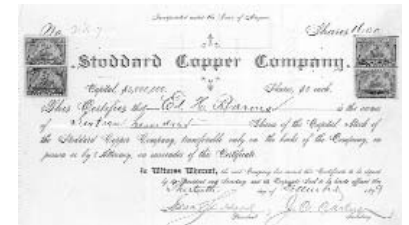 Incorporated under the Laws of Arizona
No. Shares 1600
Stoddard Copper Company.
Capital, $2,000,000. Shares, $2 each.
This Certifies that Ed. H. is the owner
of Sixteen hundred Shares of the Capital Stock of
the Stoddard Copper Company, transferable only on the books of the Company, in
person or by Attorney, on surrender of this Certificate.
In Witness Whereof, the said Company has caused this Certificate to be signed
by its President and Secretary and its Corporate Seal to be hereto affixed this
day of December
President Secretary